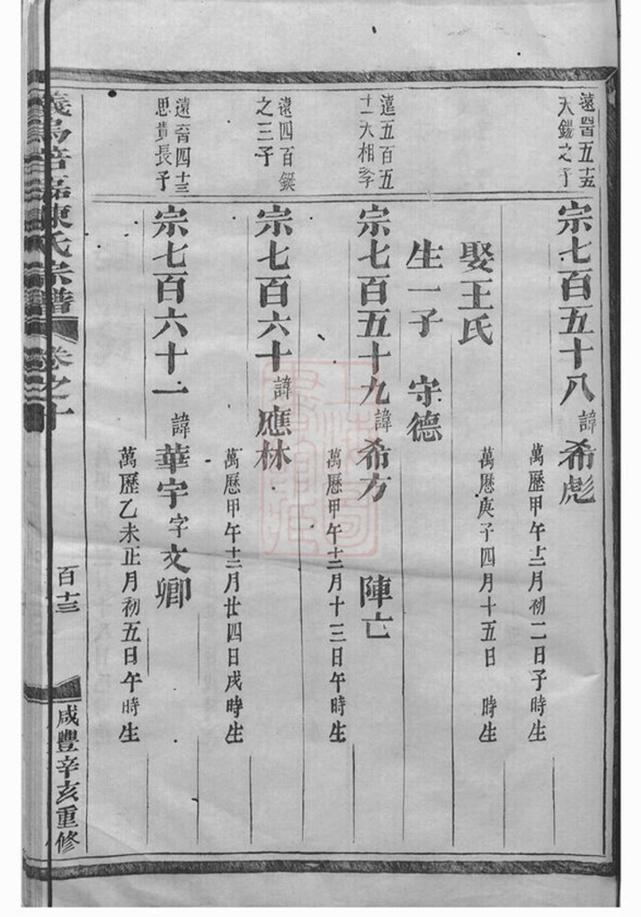 遠四百五十五
大鎧之子
宗七百五十八 諱 希彪
萬曆甲午十二月初二日子時生
娶王氏
萬歷庚子四月十五日 時生
生一子 守德
遠五百五
十二大相子
宗七百五十九 諱 希方 陣亡
萬曆甲午十二月十三日午時生
遠四百鎹
之三子
宗七百六十 諱 應林
萬歷甲午十二月廿四日戌時生
遠四十三
思貴長子
宗七百六十一 諱 華宇 字 文卿
萬歷乙未正月初五日午時生
義烏 陳氏宗譜
卷之十
百十三
咸豐辛亥重修